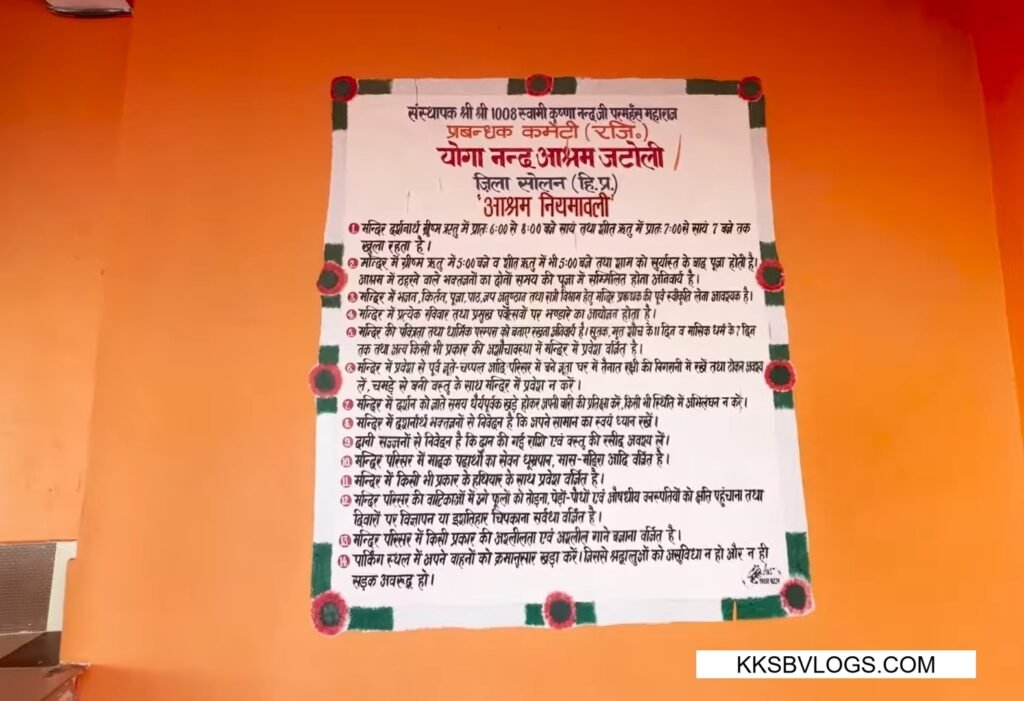 संस्थापक श्री श्री 1008 स्वामी कृष्णा नन्द जी परमहँस महाराज
प्रबन्धक कमेटी (रजि.)
योगा नन्द आश्रम जटोली
ज़िला सोलन (हि.प्र.)
'आश्रम नियमावली'
1. मन्दिर दर्शनार्थ ग्रीष्म ऋतु में प्रातः 6:00 से 8:00 बजे सायं तथा शीत ऋतु में प्रातः 7:00 से सायं 7 बजे तक
खुला रहता है।
2. मन्दिर में ग्रीष्म ऋतु में 5:00 बजे व शीत ऋतु में भी 5:00 बजे तथा शाम को सुर्यास्त के बाद पूजा होती है।
आश्रम में ठहरने वाले भक्तजनों का दोनों समय की पूजा में सम्मिलित होना अनिवार्य है।
3. मन्दिर में भजन, किर्तन, पूजा, पाठ, जप अनुष्ठान तथा रात्री विश्राम हेतु मन्दिर प्रबन्धक की पूर्व स्वीकृति लेना आवश्यक है।
4. मन्दिर में प्रत्येक रविवार तथा प्रमुख पर भण्डारे का आयोजन होता है।
5. मन्दिर की पवित्रता तथा धार्मिक परम्परा को बनाए रखना अनिवार्य है। सुतक, मृत शौच के 11 दिन व मासिक धर्म के 7 दिन
तक तथा अन्य किसी भी प्रकार की अशौचावस्था में मन्दिर में प्रवेश वर्जित है।
6. मन्दिर में प्रवेश से पूर्व जूते-चप्पल आदि परिसर में बने जूता घर में तैनात रक्षी की निगरानी में रखें तथा टोकन अवश्य
लें, चमड़े से बनी वस्तु के साथ मन्दिर में प्रवेश न करें।
7. मन्दिर में दर्शन को जाते समय धैर्यपूर्वक खड़े होकर अपनी बारी की प्रतिक्षा करें, किसी भी स्थिति में अभिलंघन न करें।
8. मन्दिर में दर्शनार्थ भक्तजनों से निवेदन है कि अपने सामान का स्वयं ध्यान रखें।
9. दानी सज्जनों से निवेदन है कि दान की गई राशि एवं वस्तु की रसीद अवश्य लें।
10. मन्दिर परिसर में मादक पदार्थों का सेवन धूम्रपान, मास-मदिरा आदि वर्जित है।
11. मन्दिर में किसी भी प्रकार के हथियार के साथ प्रवेश वर्जित है।
12. मन्दिर परिसर की वाटिकाओं में उगे फूलों को तोड़ना, पेड़ो-पौधों एवं औषधीय वनस्पतियों को क्षति पहुंचाना तथा
दिवारों पर विज्ञापन या इशतिहार चिपकाना सर्वथा वर्जित है।
13. मन्दिर परिसर में किसी प्रकार की अश्लीलता एवं अश्लील गाने बजाना वर्जित है।
14. पार्किंग स्थल में अपने वाहनों को क्रमानुसार खड़ा करें। जिससे श्रद्धालुओं को असुविधा न हो और न ही
सड़क अवरूद्ध हो।
KKSBVLOGS.COM